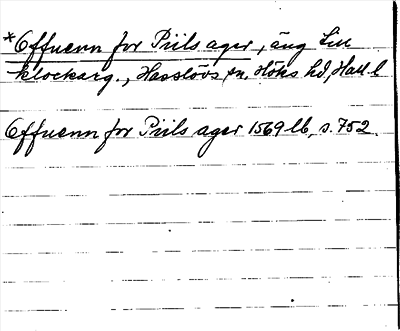 *Offuenn for Piils ager, äng till
klockareg., Hasslövs sn, Höks hd, Hall. l
Offuenn for Piils ager 1569 lb, s. 752.